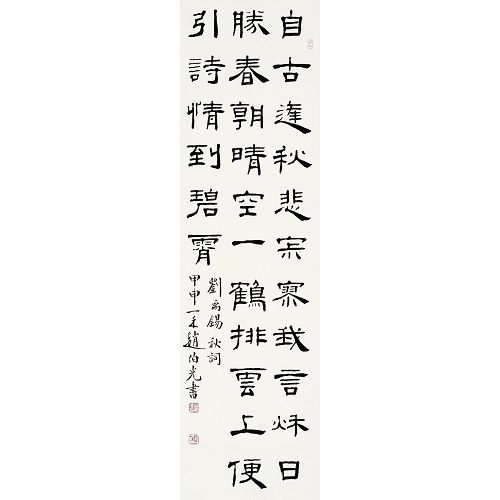 自古逢秋悲寂寥我言秋日
勝春朝晴空一鶴排雲上便
引詩情到碧霄
劉禹錫秋詞
甲申一禾趙伯光書